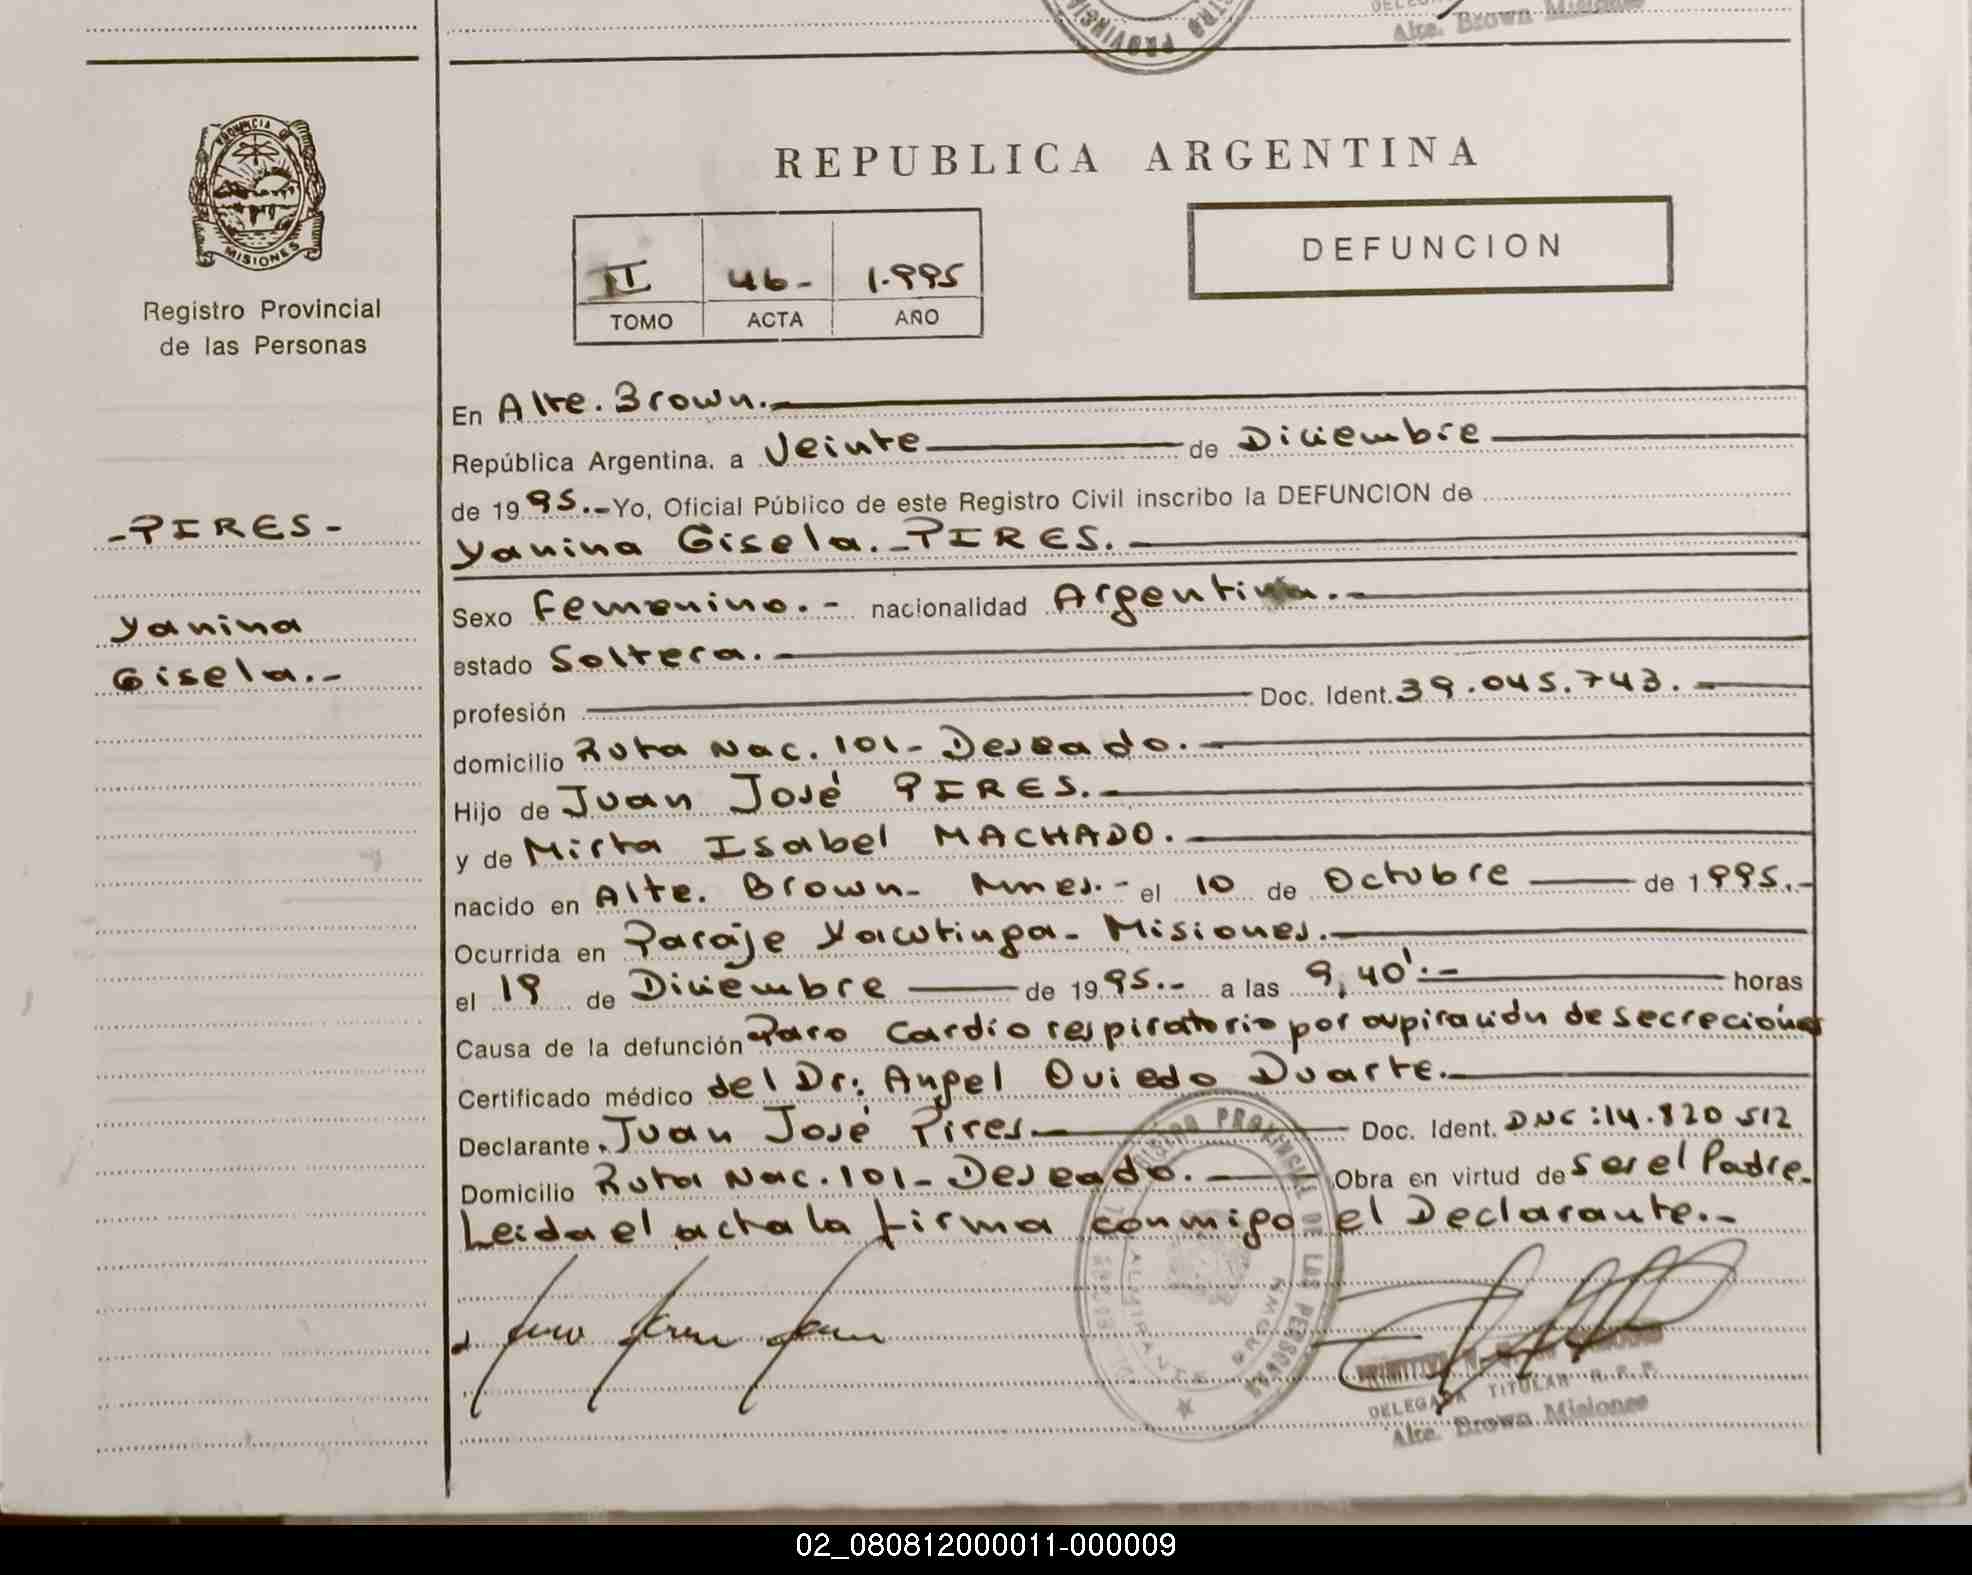 Alte. Brown Misiones
REPUBLICA ARGENTINA
DEFUNCION
PROVINCIA DE
MISIONES
Registro Provincial
de las Personas
II 46- 1.995
TOMO ACTA AÑO
En Alte. Brown.
República Argentina. a Veinte de Diciembre
de 1995.- Yo, Oficial Público de este Registro Civil inscribo la DEFUNCION de
-PIRES-
Yanina Gisela.-PIRES.
Yanina
Gisela.-
Sexo Femenino.- nacionalidad Argentina.-
estado Soltera.
profesión Doc. Ident. 39.045.743.-
domicilio Ruta Nac. 101- Deseado.
Hijo de Juan José PIRES.
y de Mirta Isabel MACHADO.
nacido en Alte. Brown- Mnes.- el 10 de Octubre de 1995.-
Ocurrida en Paraje Yacutinga- Misiones.
el 19 de Diciembre de 1995.- a las 9,40'.- horas
Causa de la defunción Paro Cardio respiratorio por aspiración de secreciones
Certificado médico del Dr. Angel Oviedo Duarte.
Declarante Juan José Pires Doc. Ident. DNC:14.820 512
Domicilio Ruta Nac. 101- Deseado. Obra en virtud de ser el Padre.
Leida el acta la firma conmigo el Declarante.-
REGISTRO PROVINCIAL DE LAS PERSONAS
ALMIRANTE BROWN
DELEGADA TITULAR R.P.P.
Alte. Brown Misiones
02_080812000011-000009